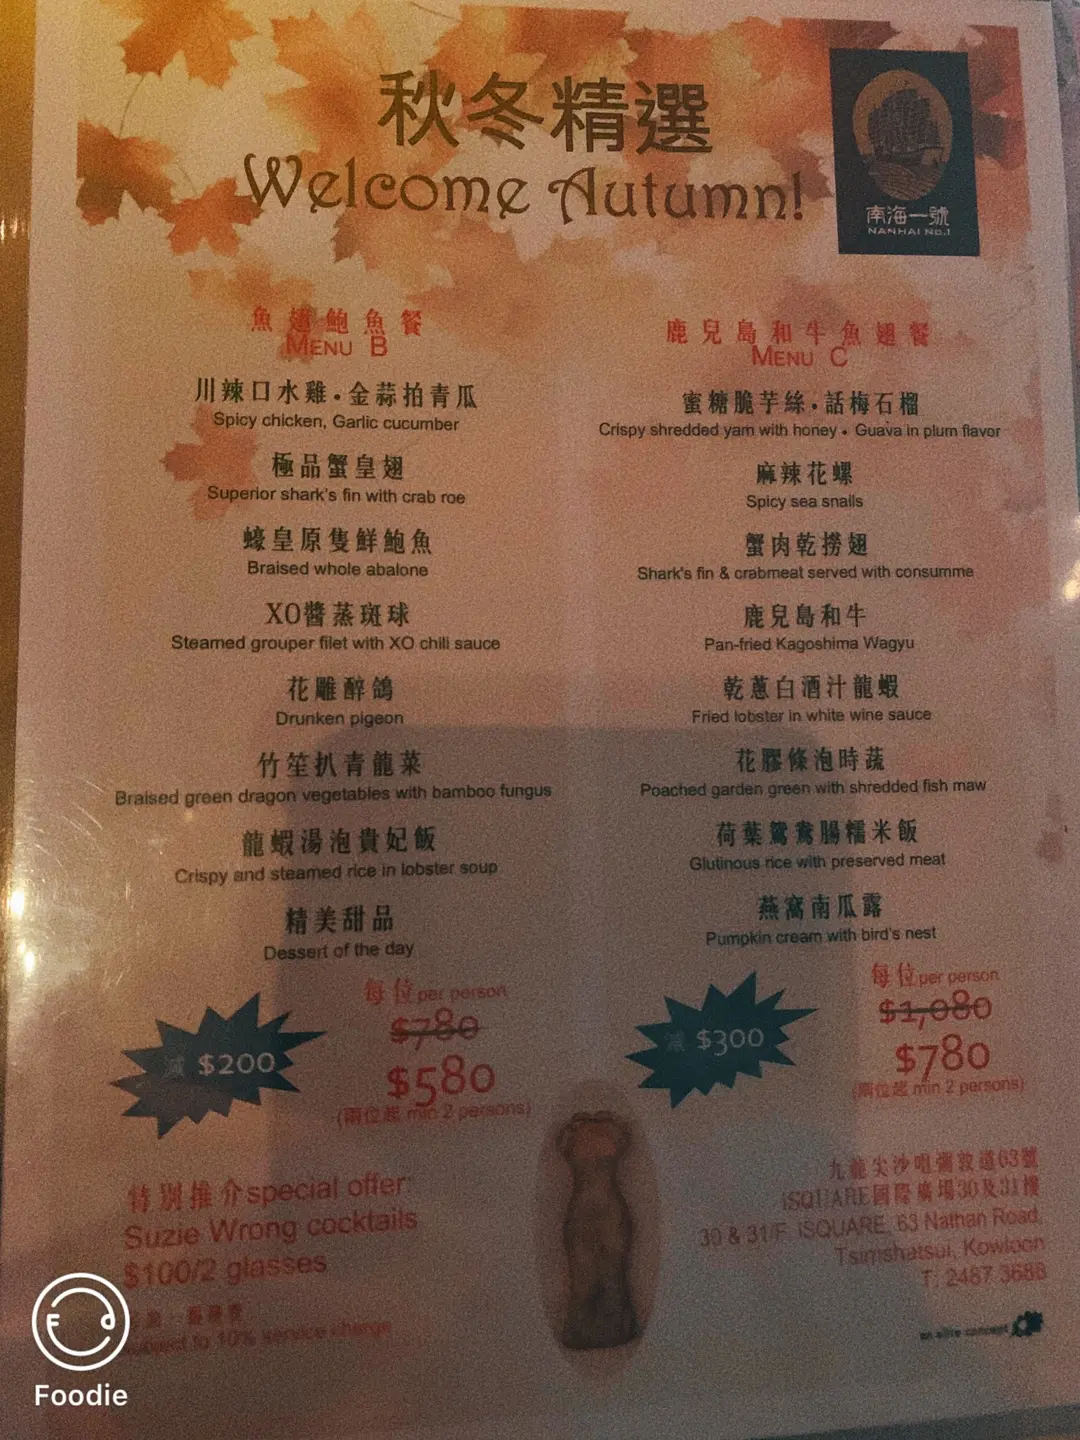 秋冬精選
Welcome Autumn!
南海一號
NANHAI No.1
魚翅鮑魚餐
MENU B
川辣口水雞•金蒜拍青瓜
Spicy chicken, Garlic cucumber
極品蟹皇翅
Superior shark's fin with crab roe
蠔皇原隻鮮鮑魚
Braised whole abalone
XO醬蒸斑球
Steamed grouper filet with XO chili sauce
花雕醉鴿
Drunken pigeon
竹笙扒青龍菜
Braised green dragon vegetables with bamboo fungus
龍蝦湯泡貴妃飯
Crispy and steamed rice in lobster soup
精美甜品
Dessert of the day
減 $200
每位per person
$780
$580
(兩位起 min 2 persons)
鹿兒島和牛魚翅餐
MENU C
蜜糖脆芋絲•話梅石榴
Crispy shredded yam with honey • Guava in plum flavor
麻辣花螺
Spicy sea snails
蟹肉乾撈翅
Shark's fin & crabmeat served with consumme
鹿兒島和牛
Pan-fried Kagoshima Wagyu
乾蔥白酒汁龍蝦
Fried lobster in white wine sauce
花膠條泡時蔬
Poached garden green with shredded fish maw
荷葉鴛鴦腸糯米飯
Glutinous rice with preserved meat
燕窩南瓜露
Pumpkin cream with bird's nest
減 $300
每位per person
$1,080
$780
(兩位起 min 2 persons)
特別推介special offer:
Suzie Wrong cocktails
$100/2 glasses
subject to 10% service charge
九龍尖沙咀彌敦道63號
iSQUARE國際廣場30及31樓
30 & 31/F iSQUARE, 63 Nathan Road,
Tsimshatsui, Kowloon
T: 2487 3688
an elite concept
F d
Foodie